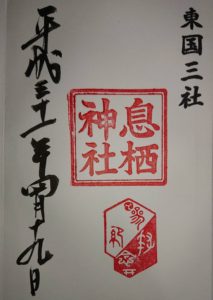 東国三社
息栖
神社
平成三十一年四月十九日